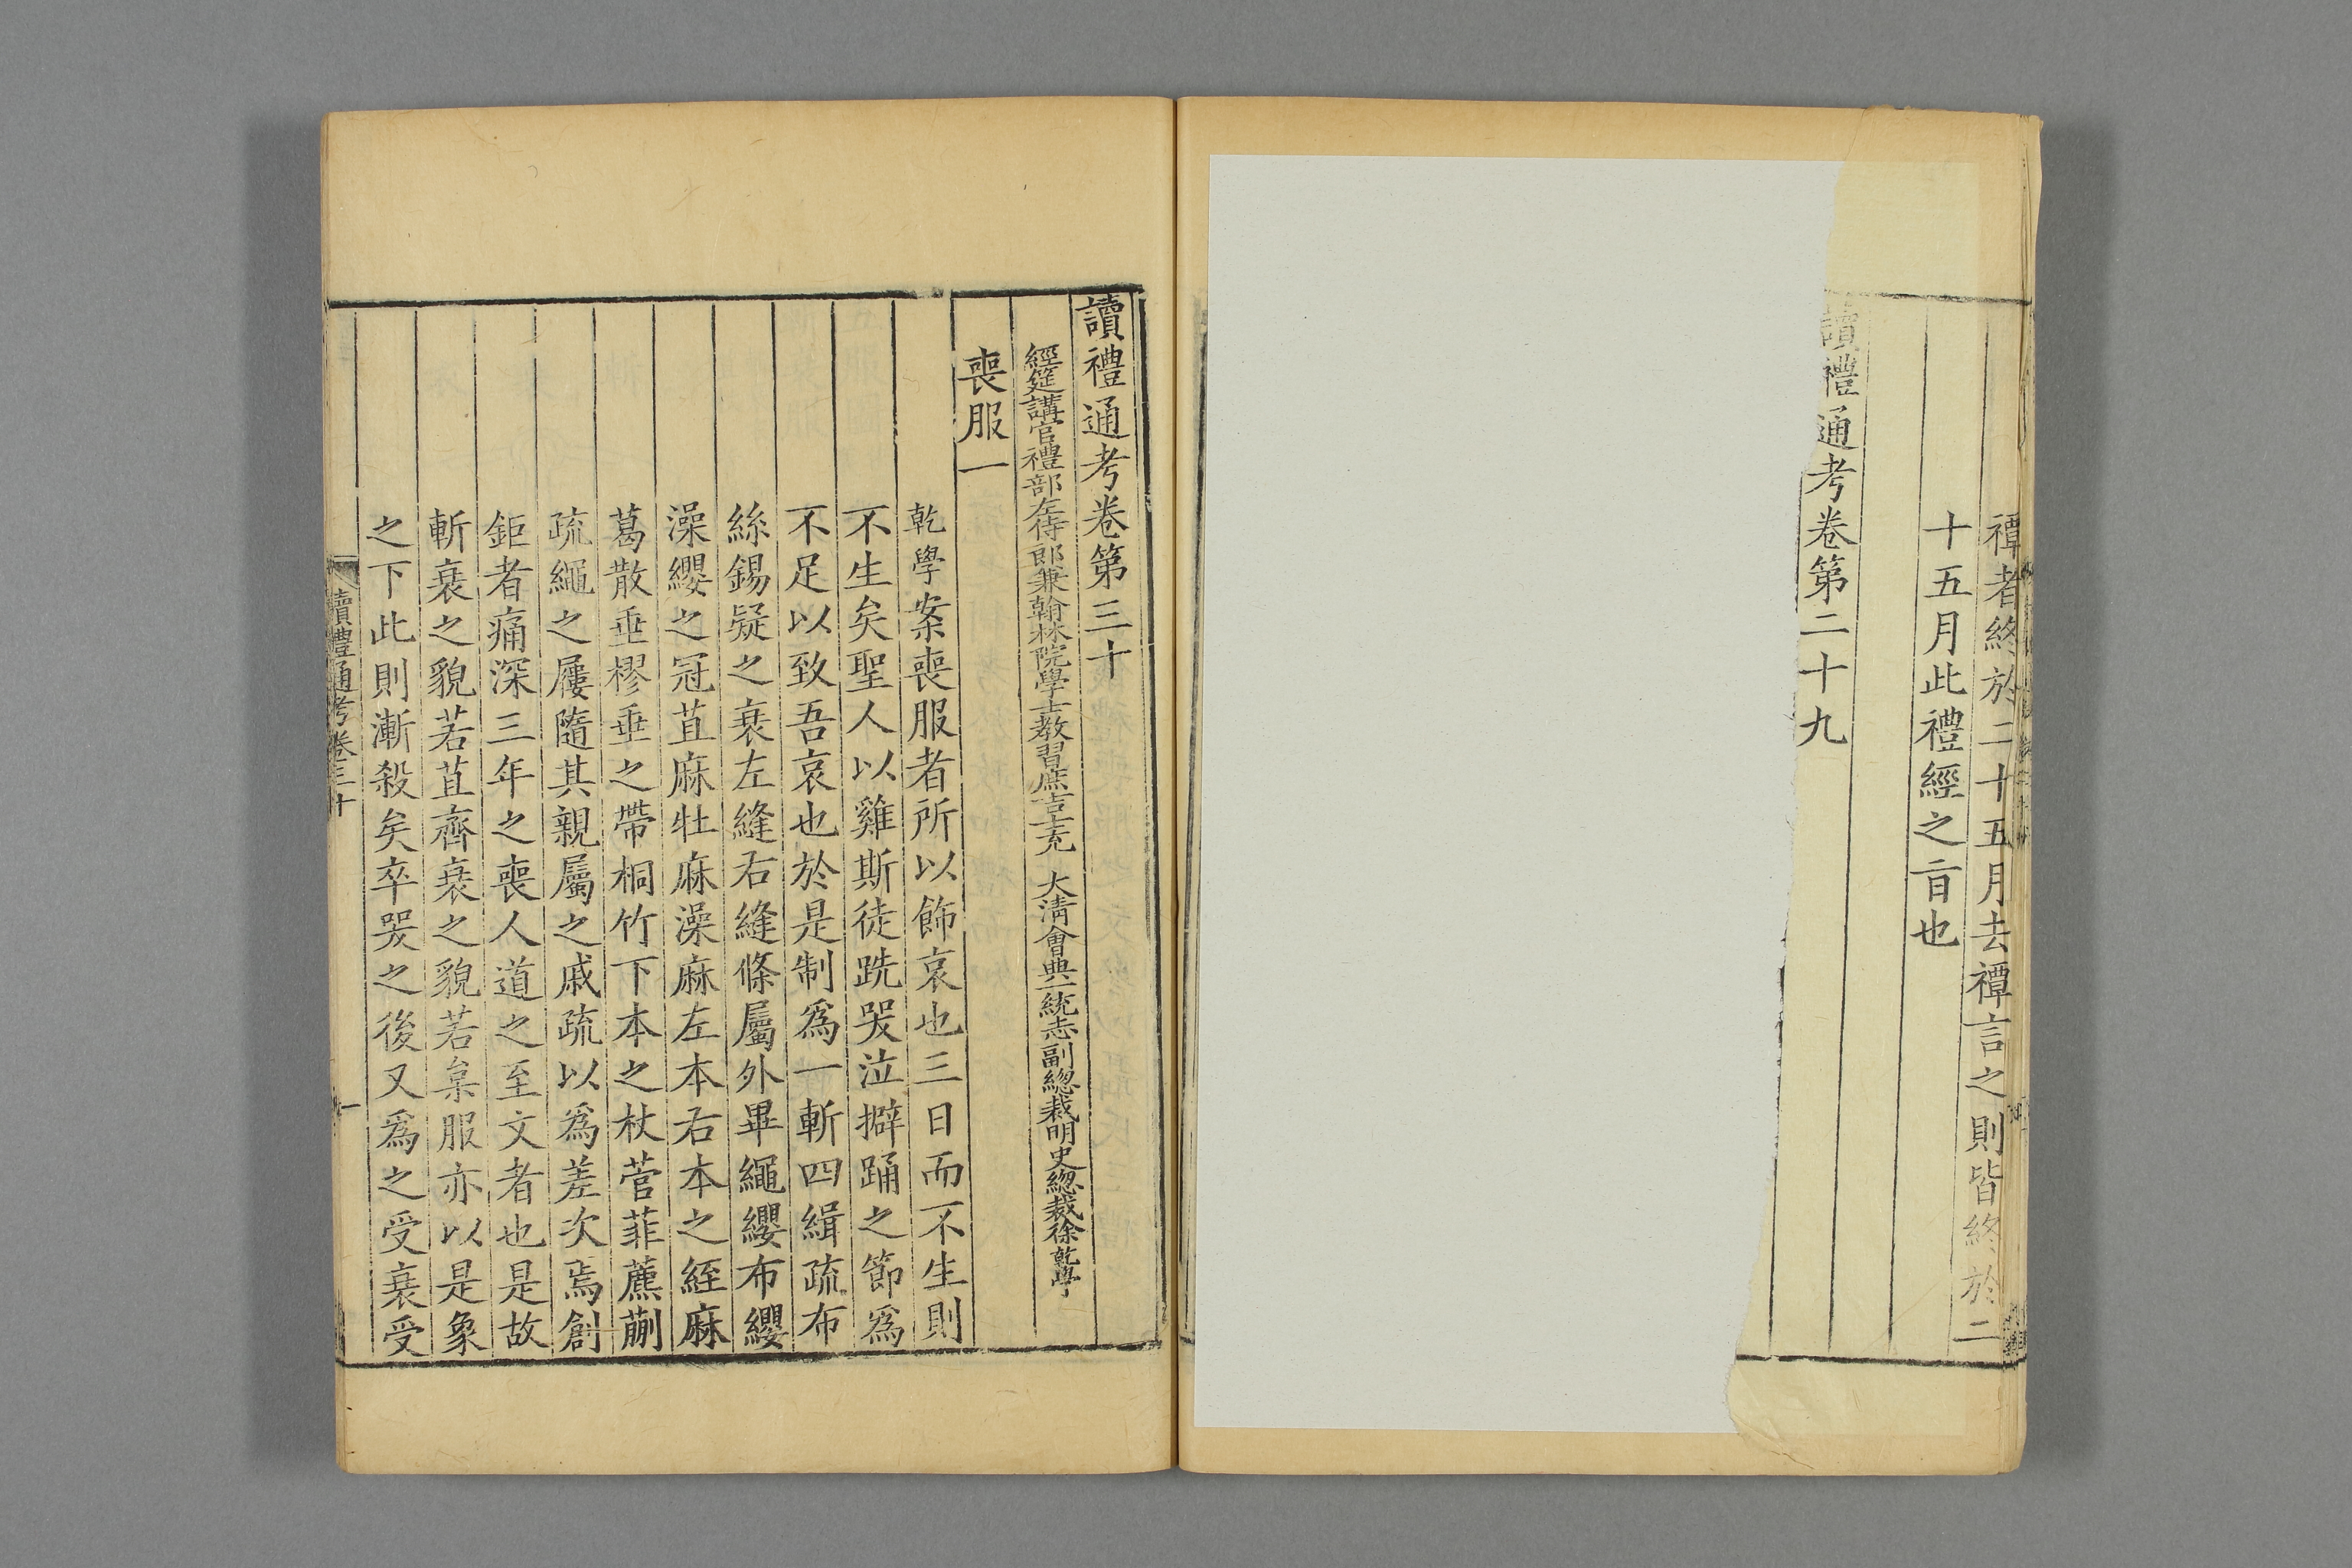 禫者終於二十五月去禫言之則皆終於二
十五月此禮經之㫖也
讀禮通考卷第二十九
讀禮通考卷第三十
經筵講官禮部左侍郎兼翰林院學士教習庶吉士充 大清會典一統志副總裁明史總裁徐乾學
喪服一
乾學案喪服者所以飾哀也三日而不生則
不生矣聖人以雞斯徒跣哭泣擗踊之節爲
不足以致吾哀也於是制爲一斬四緝疏布
絲錫疑之衰左縫右縫條屬外畢繩纓布纓
澡纓之冠苴麻牡麻澡麻左本右本之絰麻
葛散垂樛垂之帶桐竹下本之杖菅菲藨蒯
疏繩之屨隨其親屬之戚疏以爲差次焉創
鉅者痛深三年之喪人道之至文者也是故
斬衰之貌若苴齊衰之貌若枲服亦以是象
之下此則漸殺矣卒哭之後又爲之受衰受
讀禮通考卷三十
一